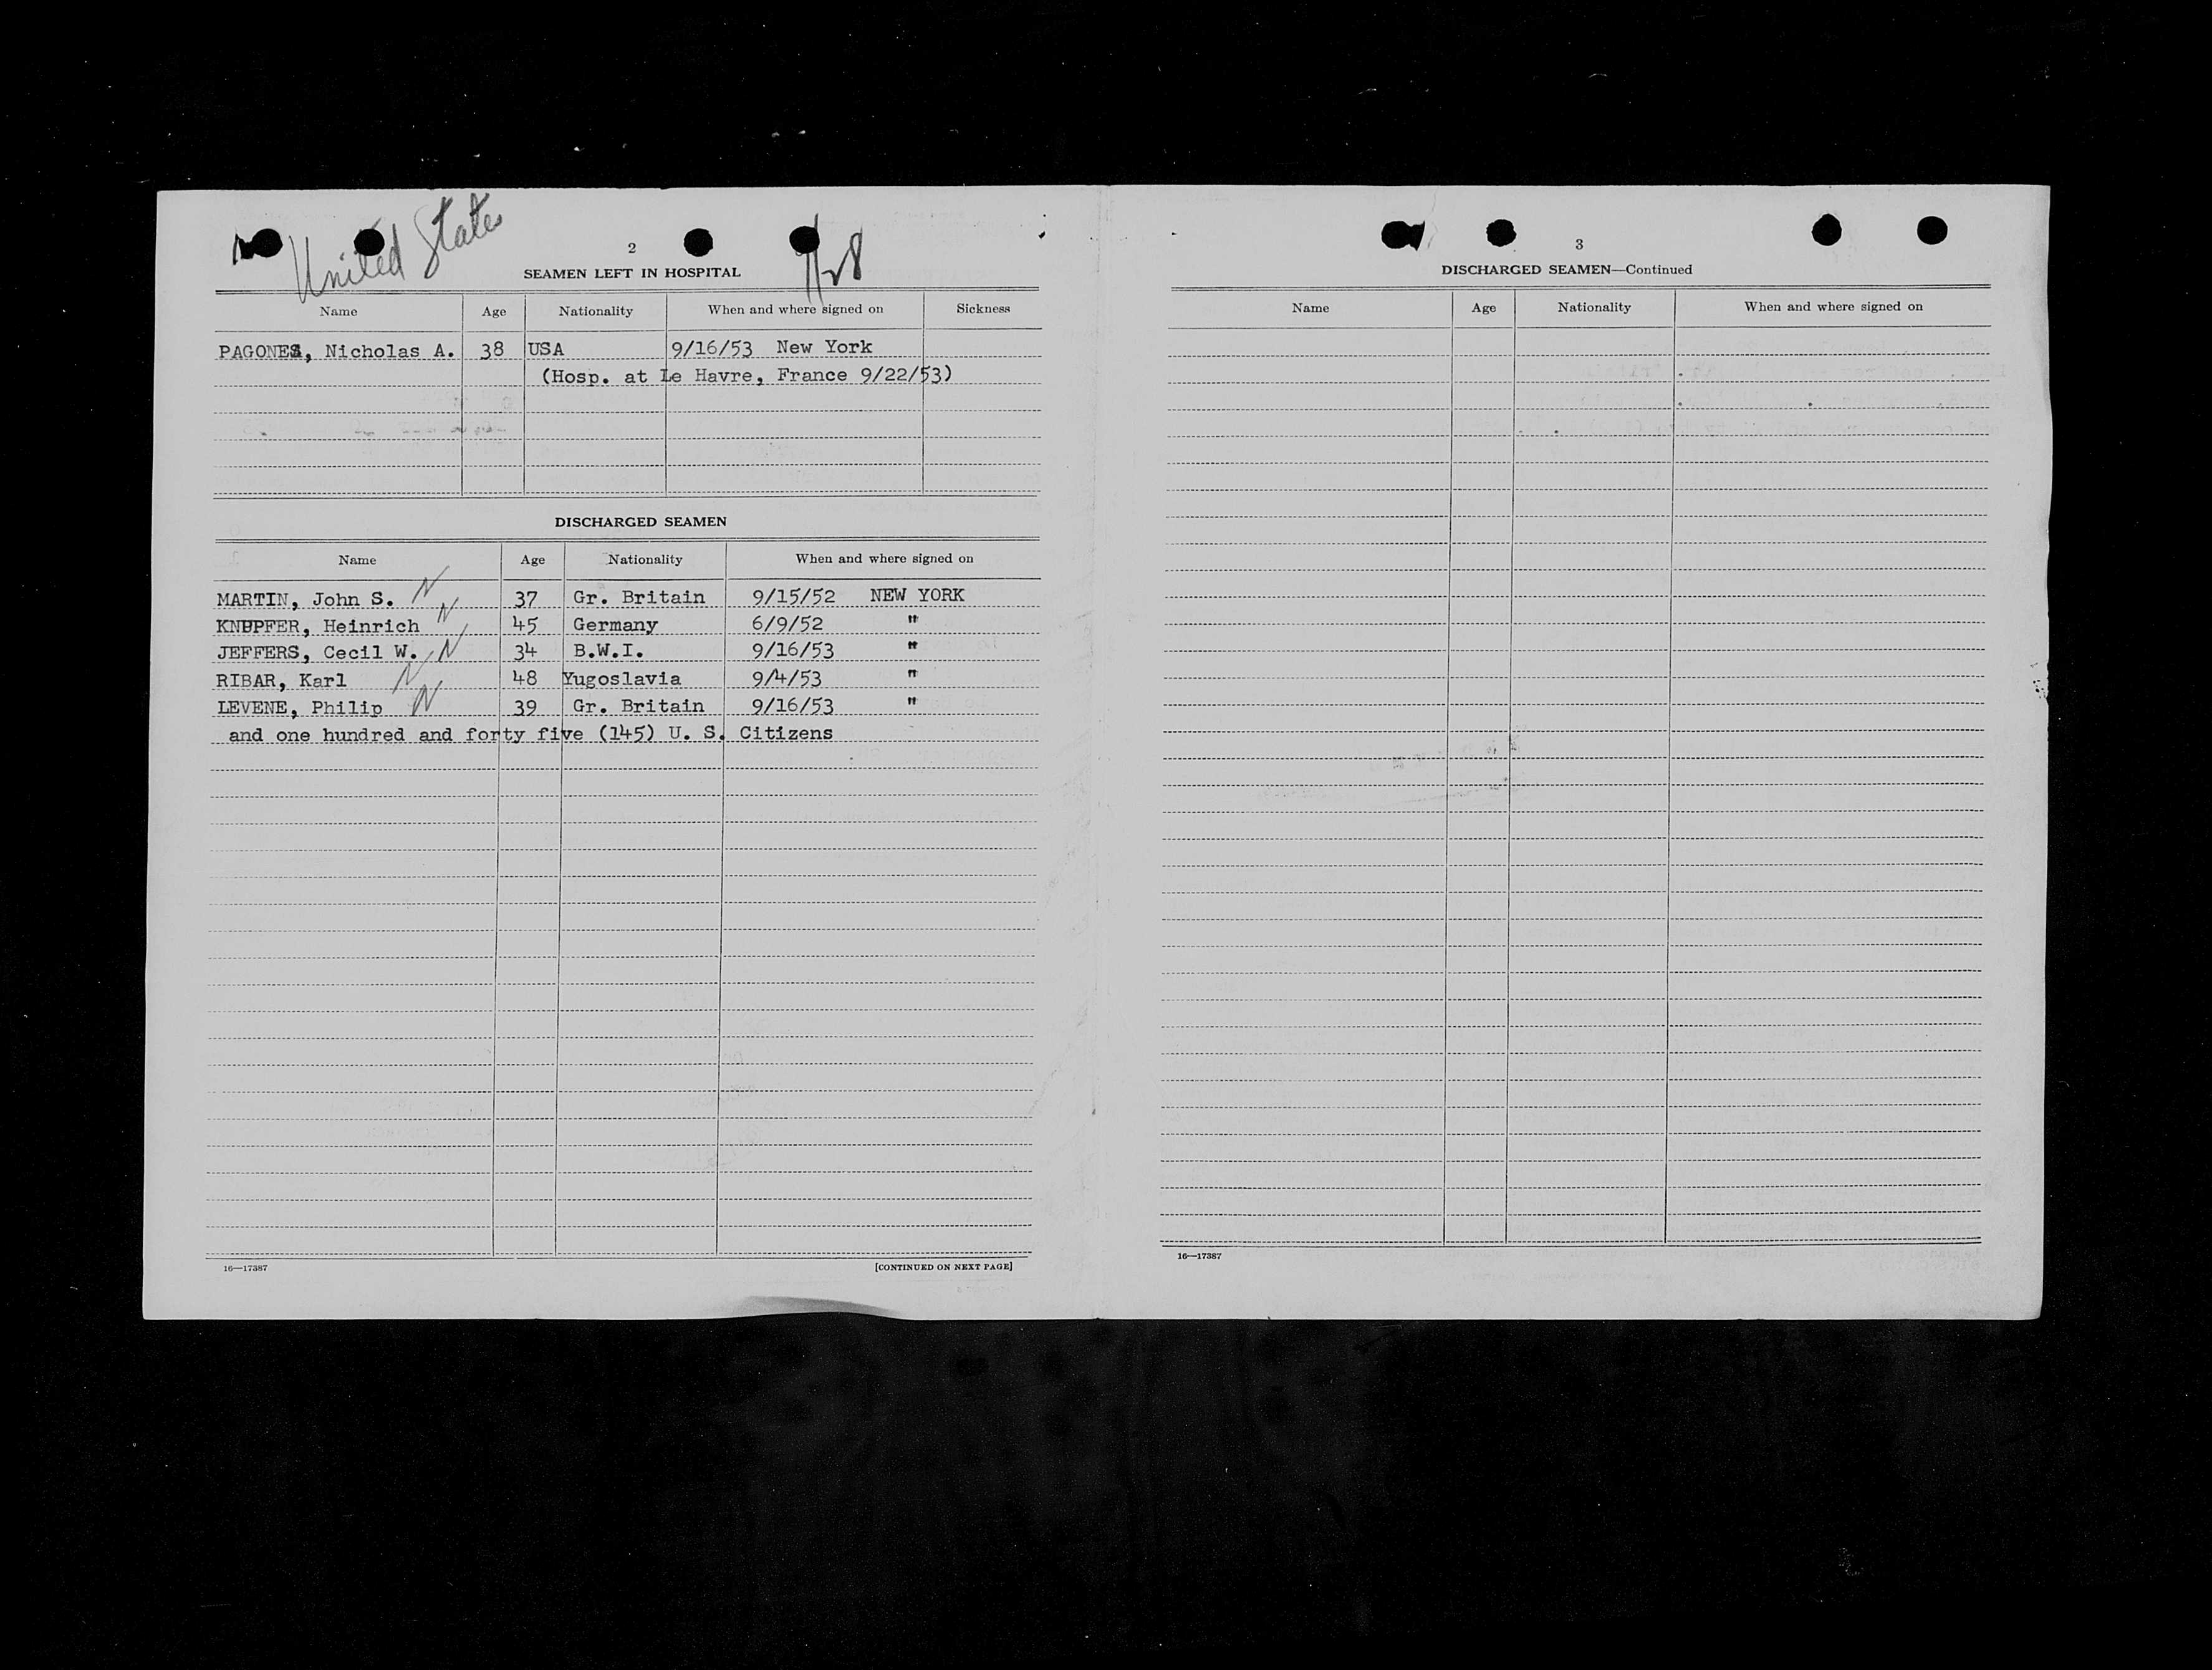 United States
2
9/28
SEAMEN LEFT IN HOSPITAL
Name Age Nationality When and where signed on Sickness
PAGONES, Nicholas A. 38 USA 9/16/53 New York
(Hosp. at Le Havre, France 9/22/53)
DISCHARGED SEAMEN
Name Age Nationality When and where signed on
MARTIN, John S. N 37 Gr. Britain 9/15/52 NEW YORK
KNUPFER, Heinrich N 45 Germany 6/9/52 "
JEFFERS, Cecil W. N 34 B.W.I. 9/16/53 "
RIBAR, Karl N 48 Yugoslavia 9/4/53 "
LEVENE, Philip N 39 Gr. Britain 9/16/53 "
and one hundred and forty five (145) U. S. Citizens
16—17387 [CONTINUED ON NEXT PAGE]
3
DISCHARGED SEAMEN—Continued
Name Age Nationality When and where signed on
16—17387